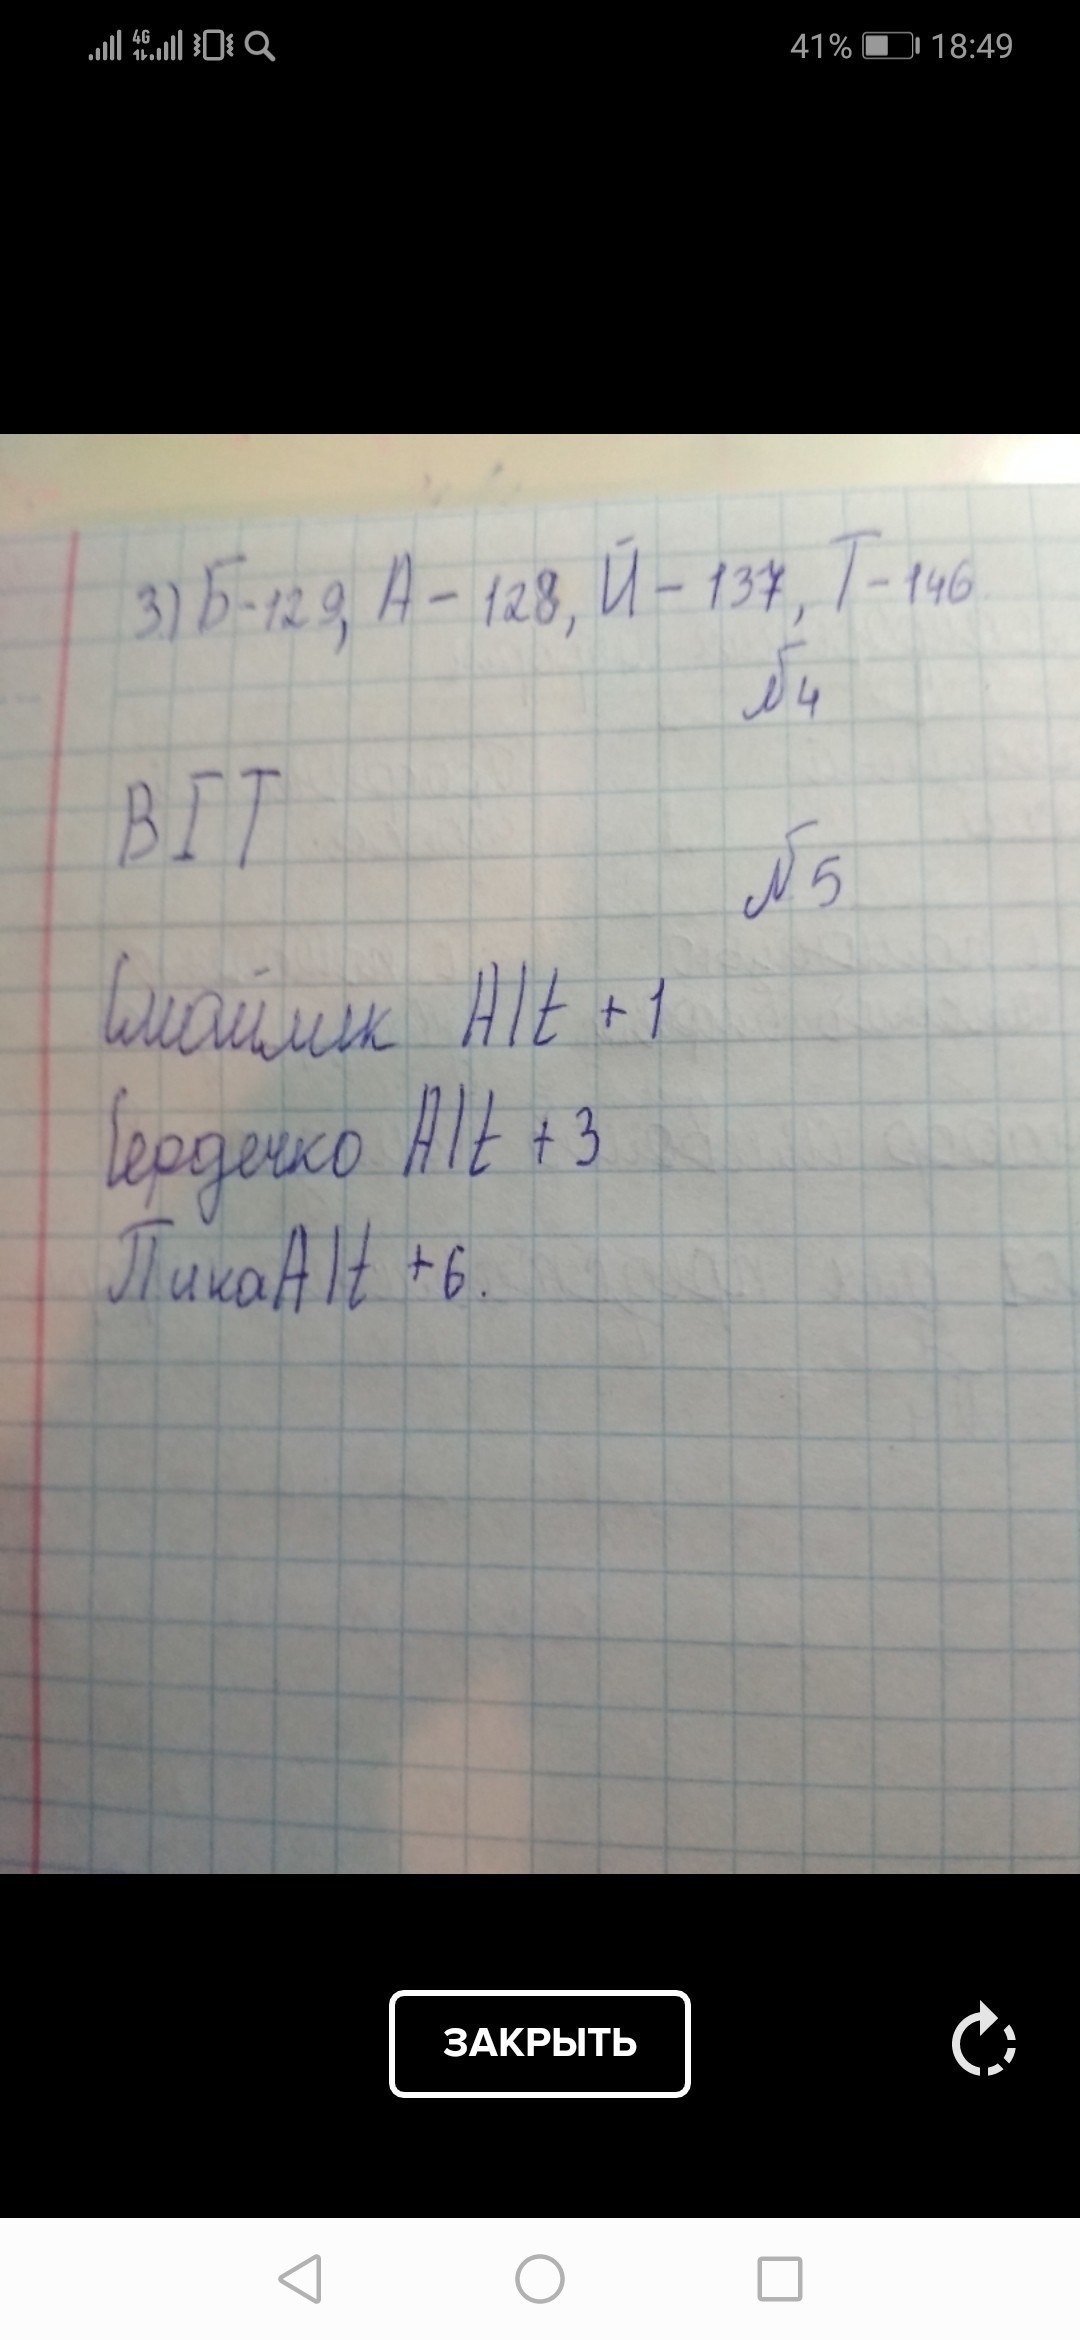 4G 41% 18:49
3.) Б-129, А - 128, Й - 137, Т - 146
№4
BIT
№5
Смайлик Alt + 1
Сердечко Alt + 3
Пика Alt + 6.
ЗАКРЫТЬ